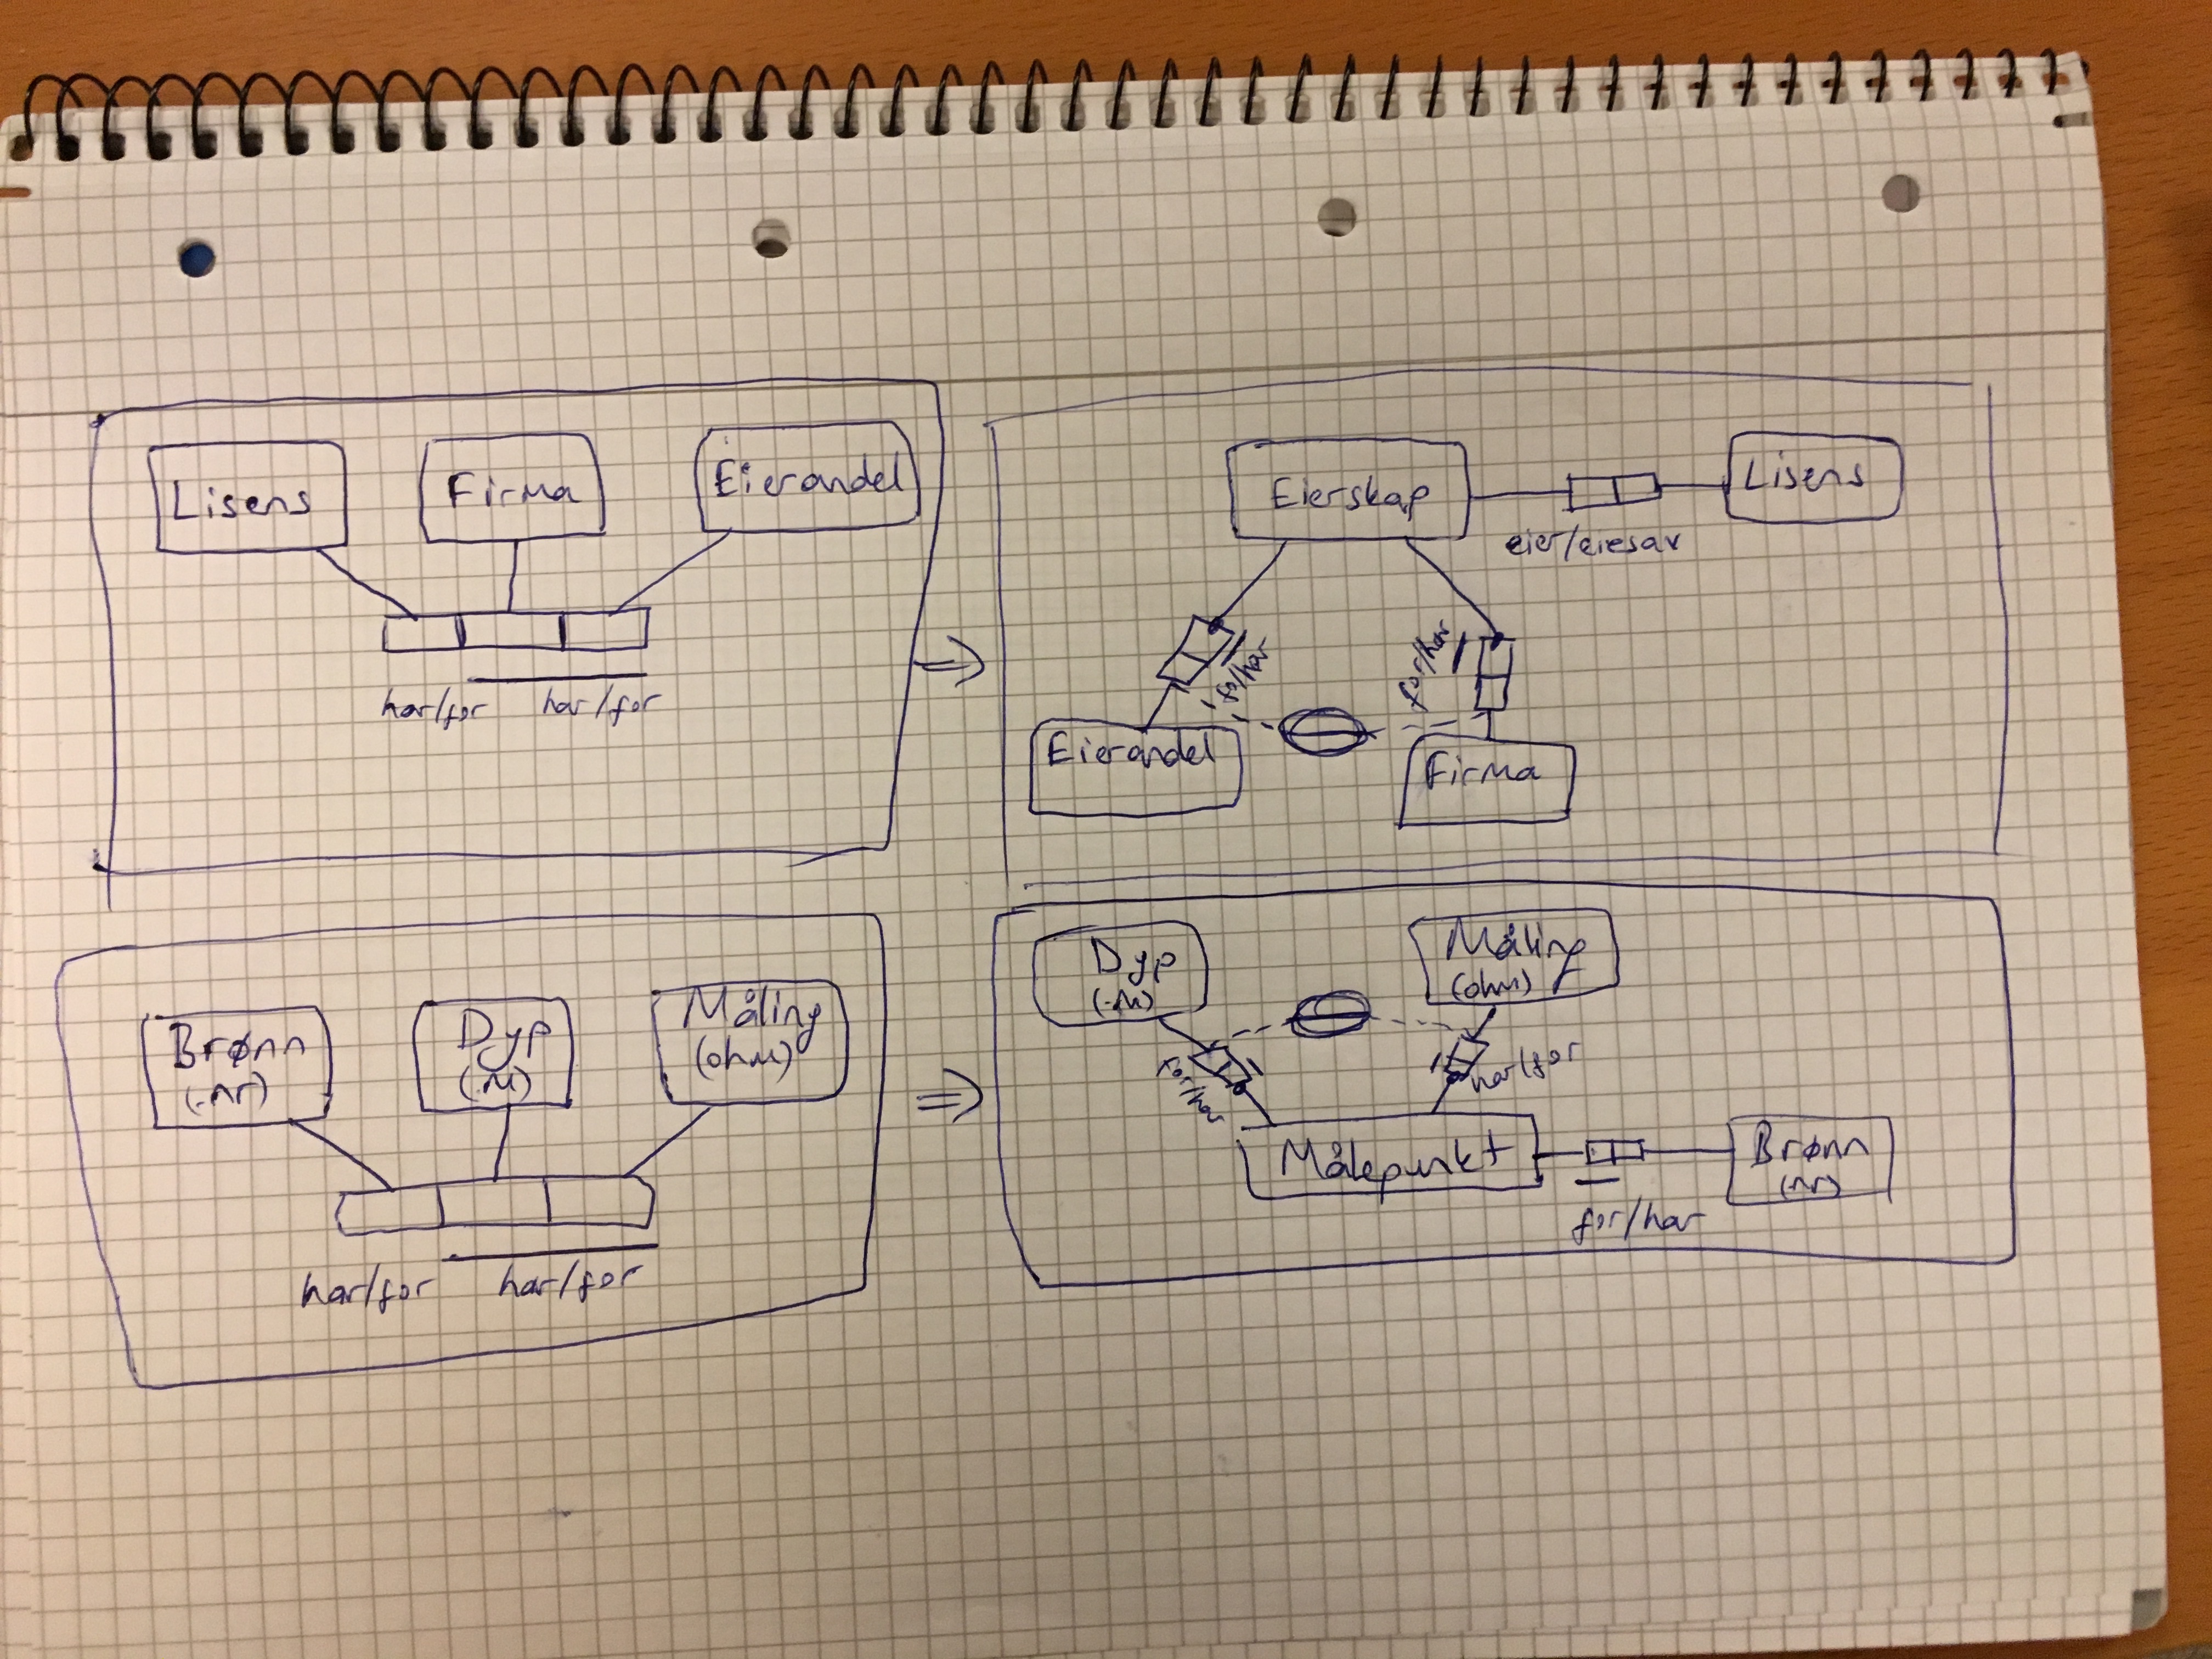 Lisens Firma Eierandel
har/for har/for
⇒
Eierskap Lisens
eier/eiesav
for/har for/har
Eierandel Firma
Brønn Dyp Måling
(-nr) (-M) (ohm)
har/for har/for
⇒
Dyp Måling
(-M) (ohm)
for/har har/for
Målepunkt Brønn
(nr)
for/har